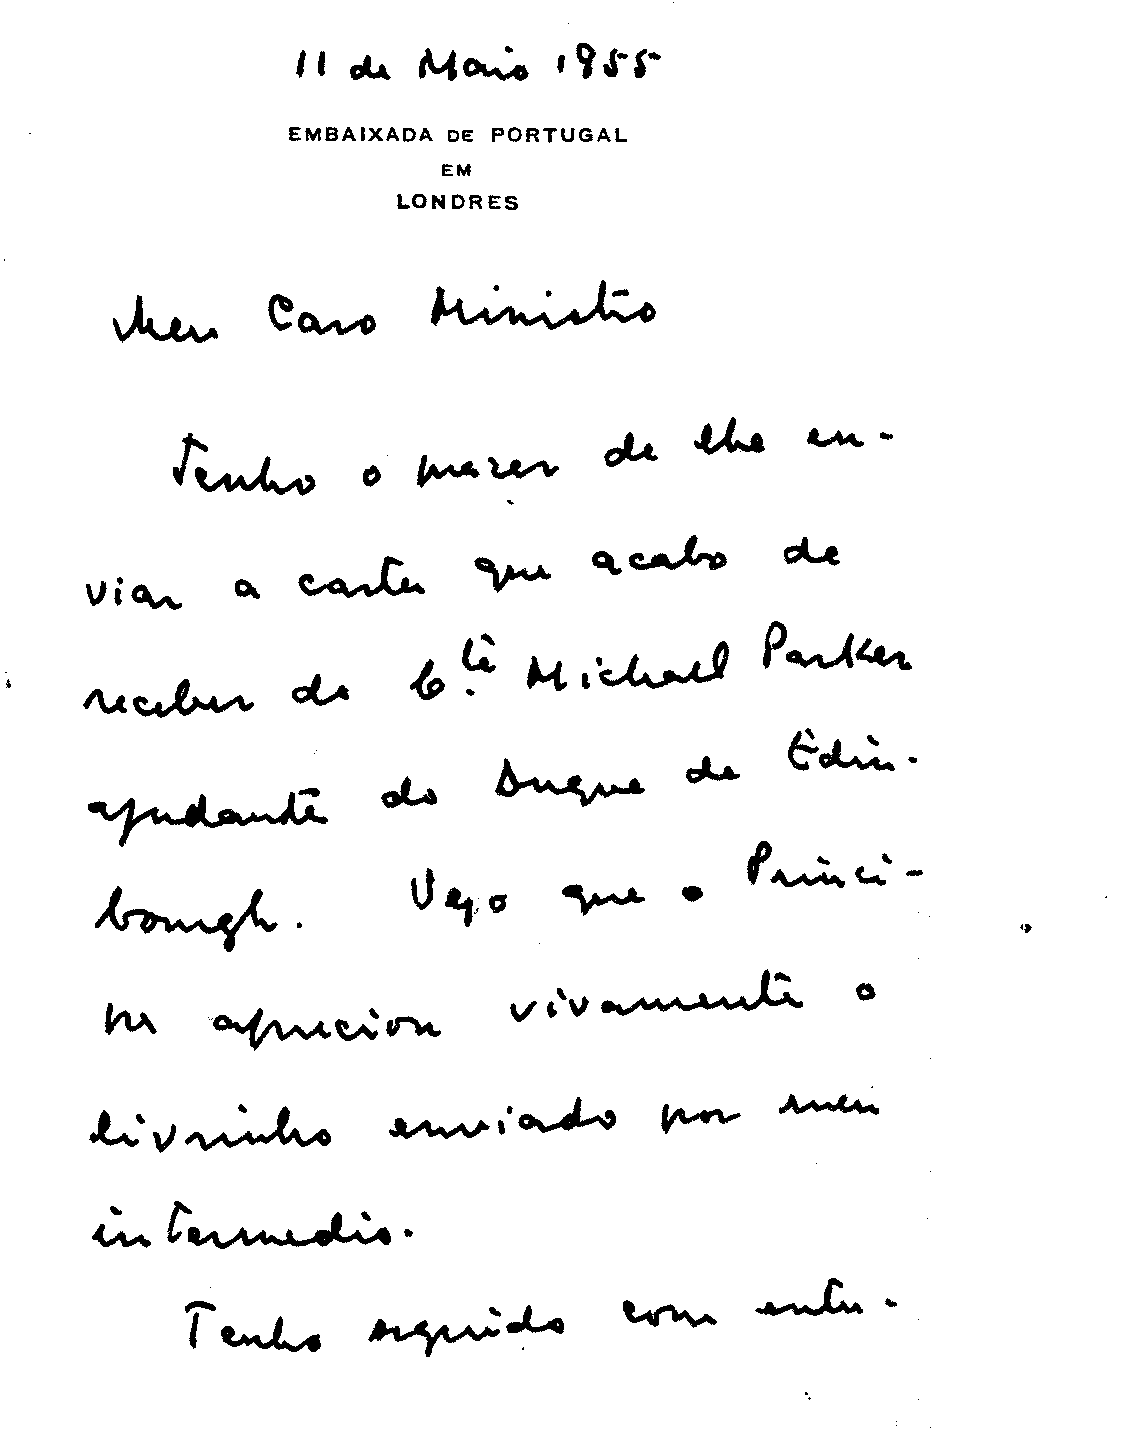 11 de Maio 1955
EMBAIXADA DE PORTUGAL
EM
LONDRES
Meu Caro Ministro
Tenho o prazer de lhe en-
viar a carta que acabo de
receber do C.te Michael Parker
ajudante do Duque de Edin-
bourgh. Vejo que o Princi-
pe apreciou vivamente o
livrinho enviado por meu
intermedio.
Tenho seguido com entu-